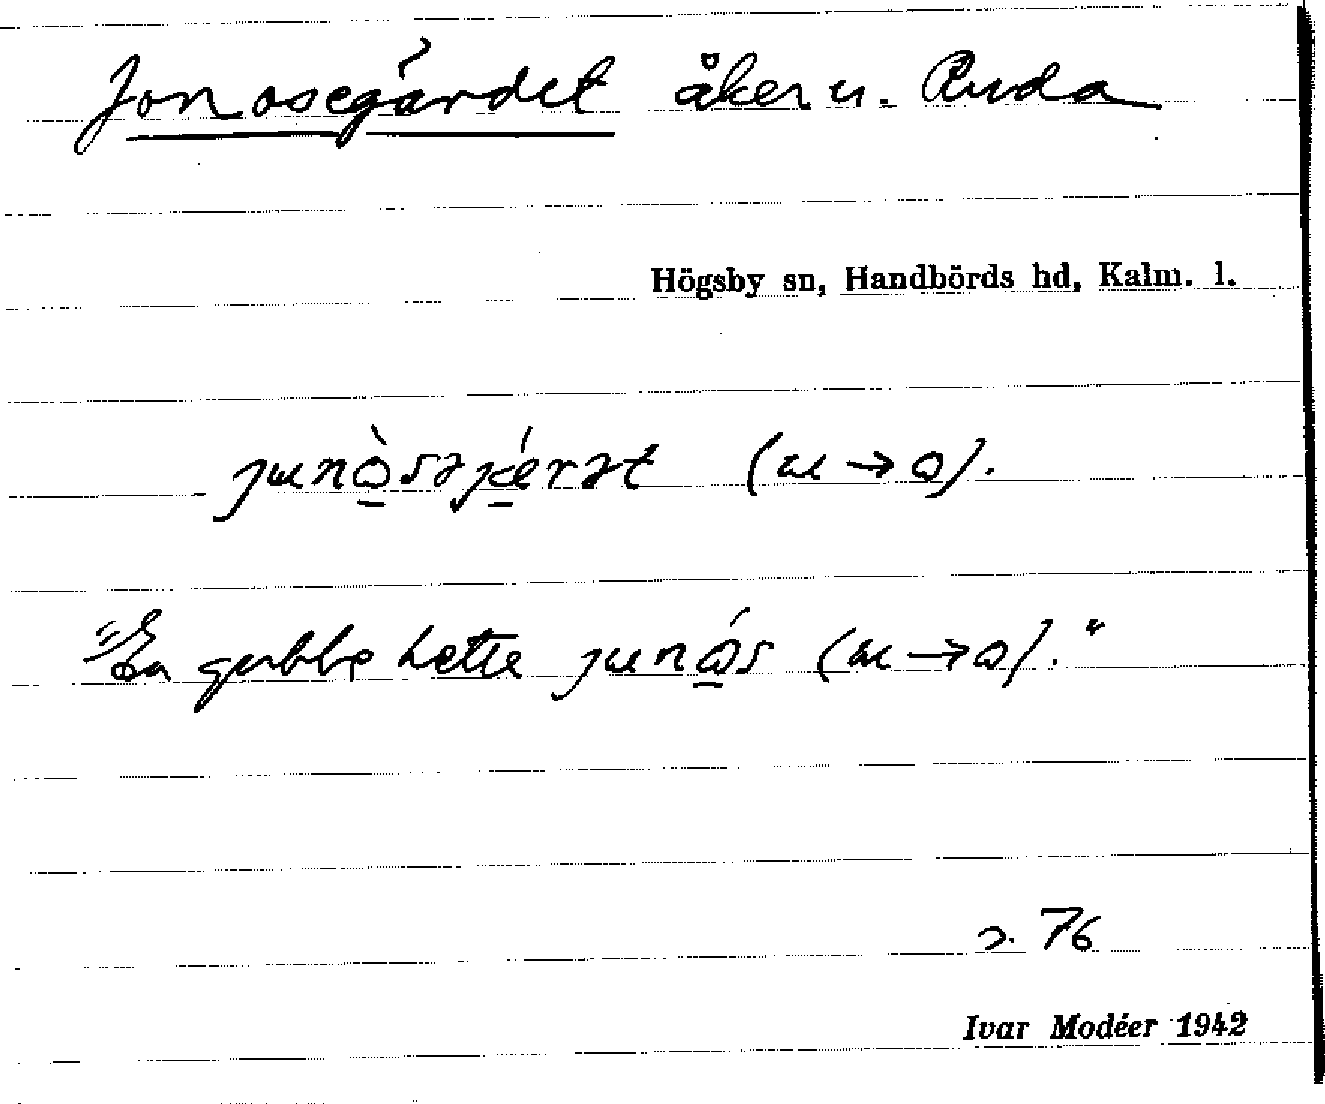 Jonosegärdet åker u. Ruda
Högsby sn, Handbörds hd, Kalm. l.
junòsəjǽrət (u → o).
"En gubbe hette junós (u → o)."
s. 76
Ivar Modéer 1942